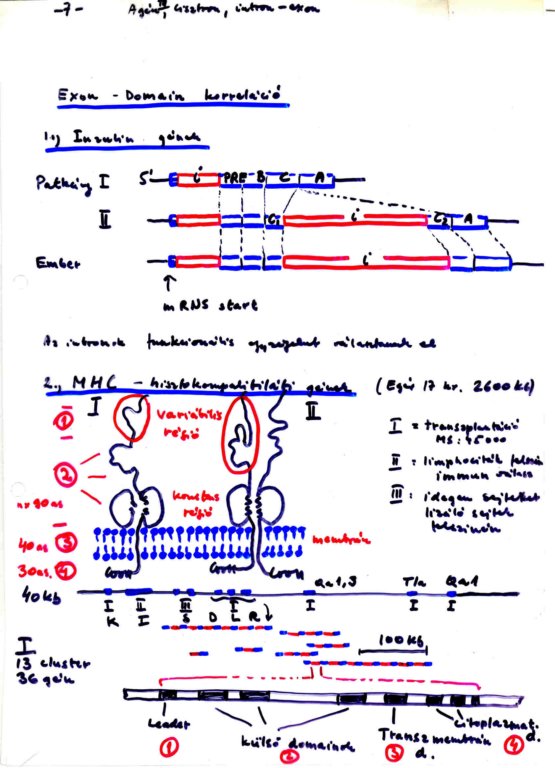 -7- A gén, cisztron, intron-exon
Exon - Domain korreláció
1.) Inzulin gének
Patkány I 5' i PRE B C A
II C₁ i C₂ A
Ember i
mRNS start
Az intronok funkcionális egységeket választanak el
2., MHC - hisztokompatibilitási gének (Egér 17 kr. 2600 kb)
I II
① variábilis
régió
②
konstans
régió
③ membrán
40 as
30 as. ④
COOH COOH COOH
I = transzplantáció
MS: 45000
II = limphociták felszín
immun válasz
III = idegen sejteket
lizáló sejtek
felszínén
40 kb Qa 1,3 Tla Qa1
I II III I I I
K I S D L R
100 Kb
I
13 cluster
36 gén
Leader külső domainok Transzmembrán d. citoplazmat. d.
① ② ③ ④